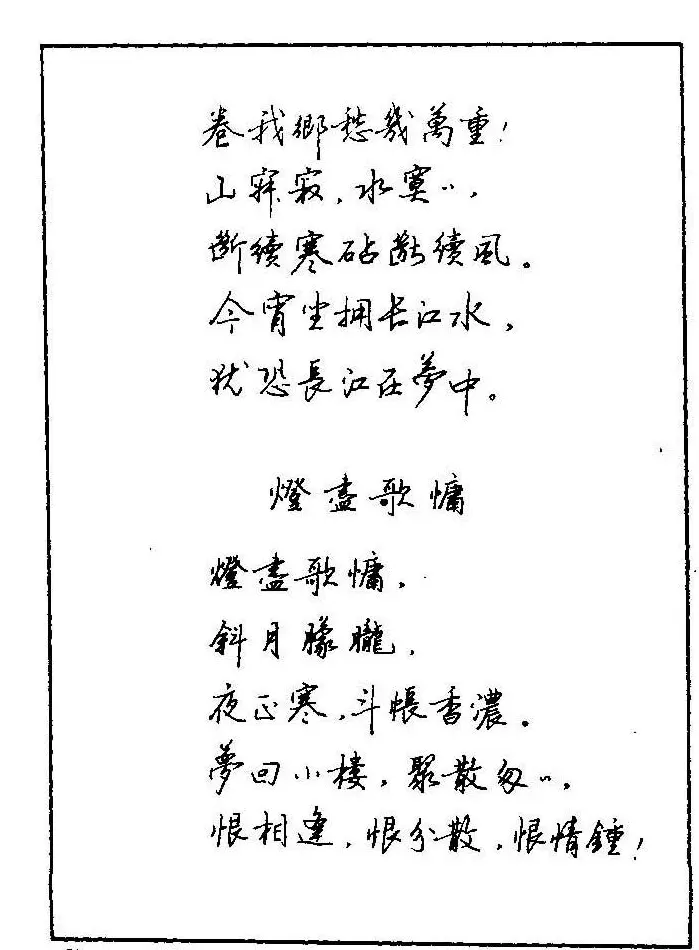 卷我鄉愁幾萬重！
山寂寂，水寞〻，
斷續寒砧斷續風。
今宵坐拥长江水，
犹恐長江在夢中。
燈盡歌慵
燈盡歌慵，
斜月朦朧，
夜正寒，斗帳香濃。
夢回小楼，聚散匆〻，
恨相逢，恨分散，恨情鍾！